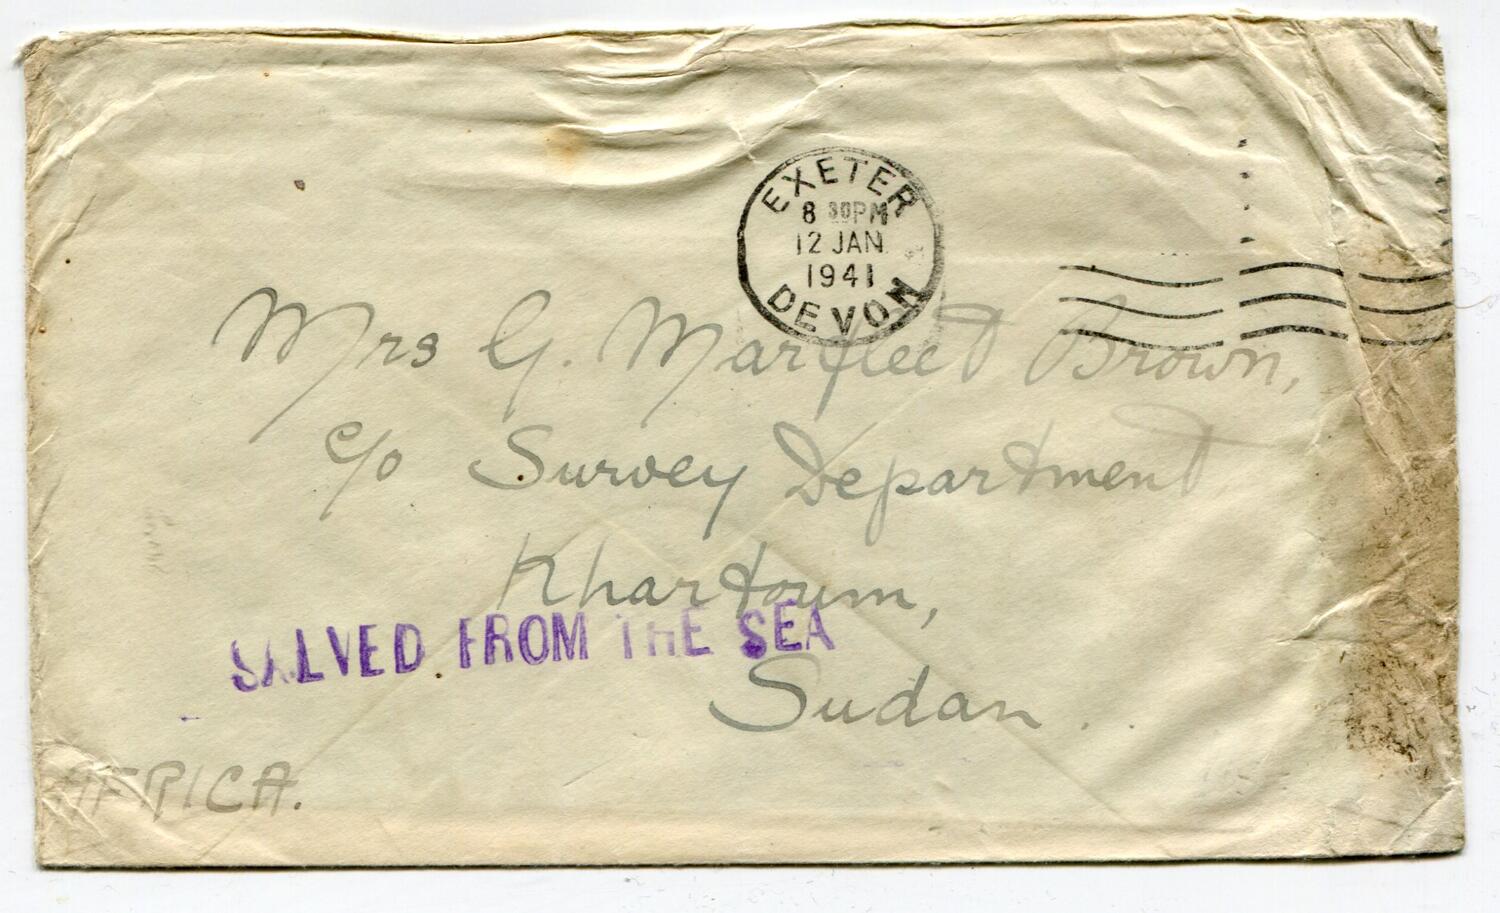 EXETER
8 30PM
12 JAN
1941
DEVON
Mrs G. Marfleet Brown,
c/o Survey Department
Khartoum,
SALVED FROM THE SEA
Sudan.
AFRICA.